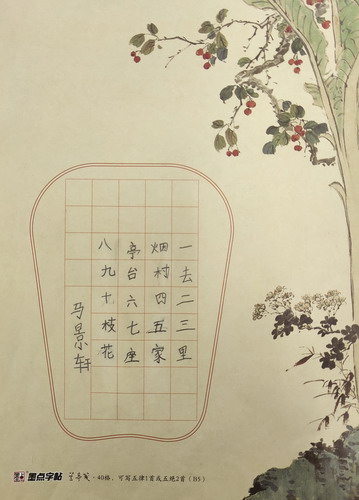 一去二三里
烟村四五家
亭台六七座
八九十枝花
马景轩
墨点字帖
·40格，可写五律1首或五绝2首（B5）